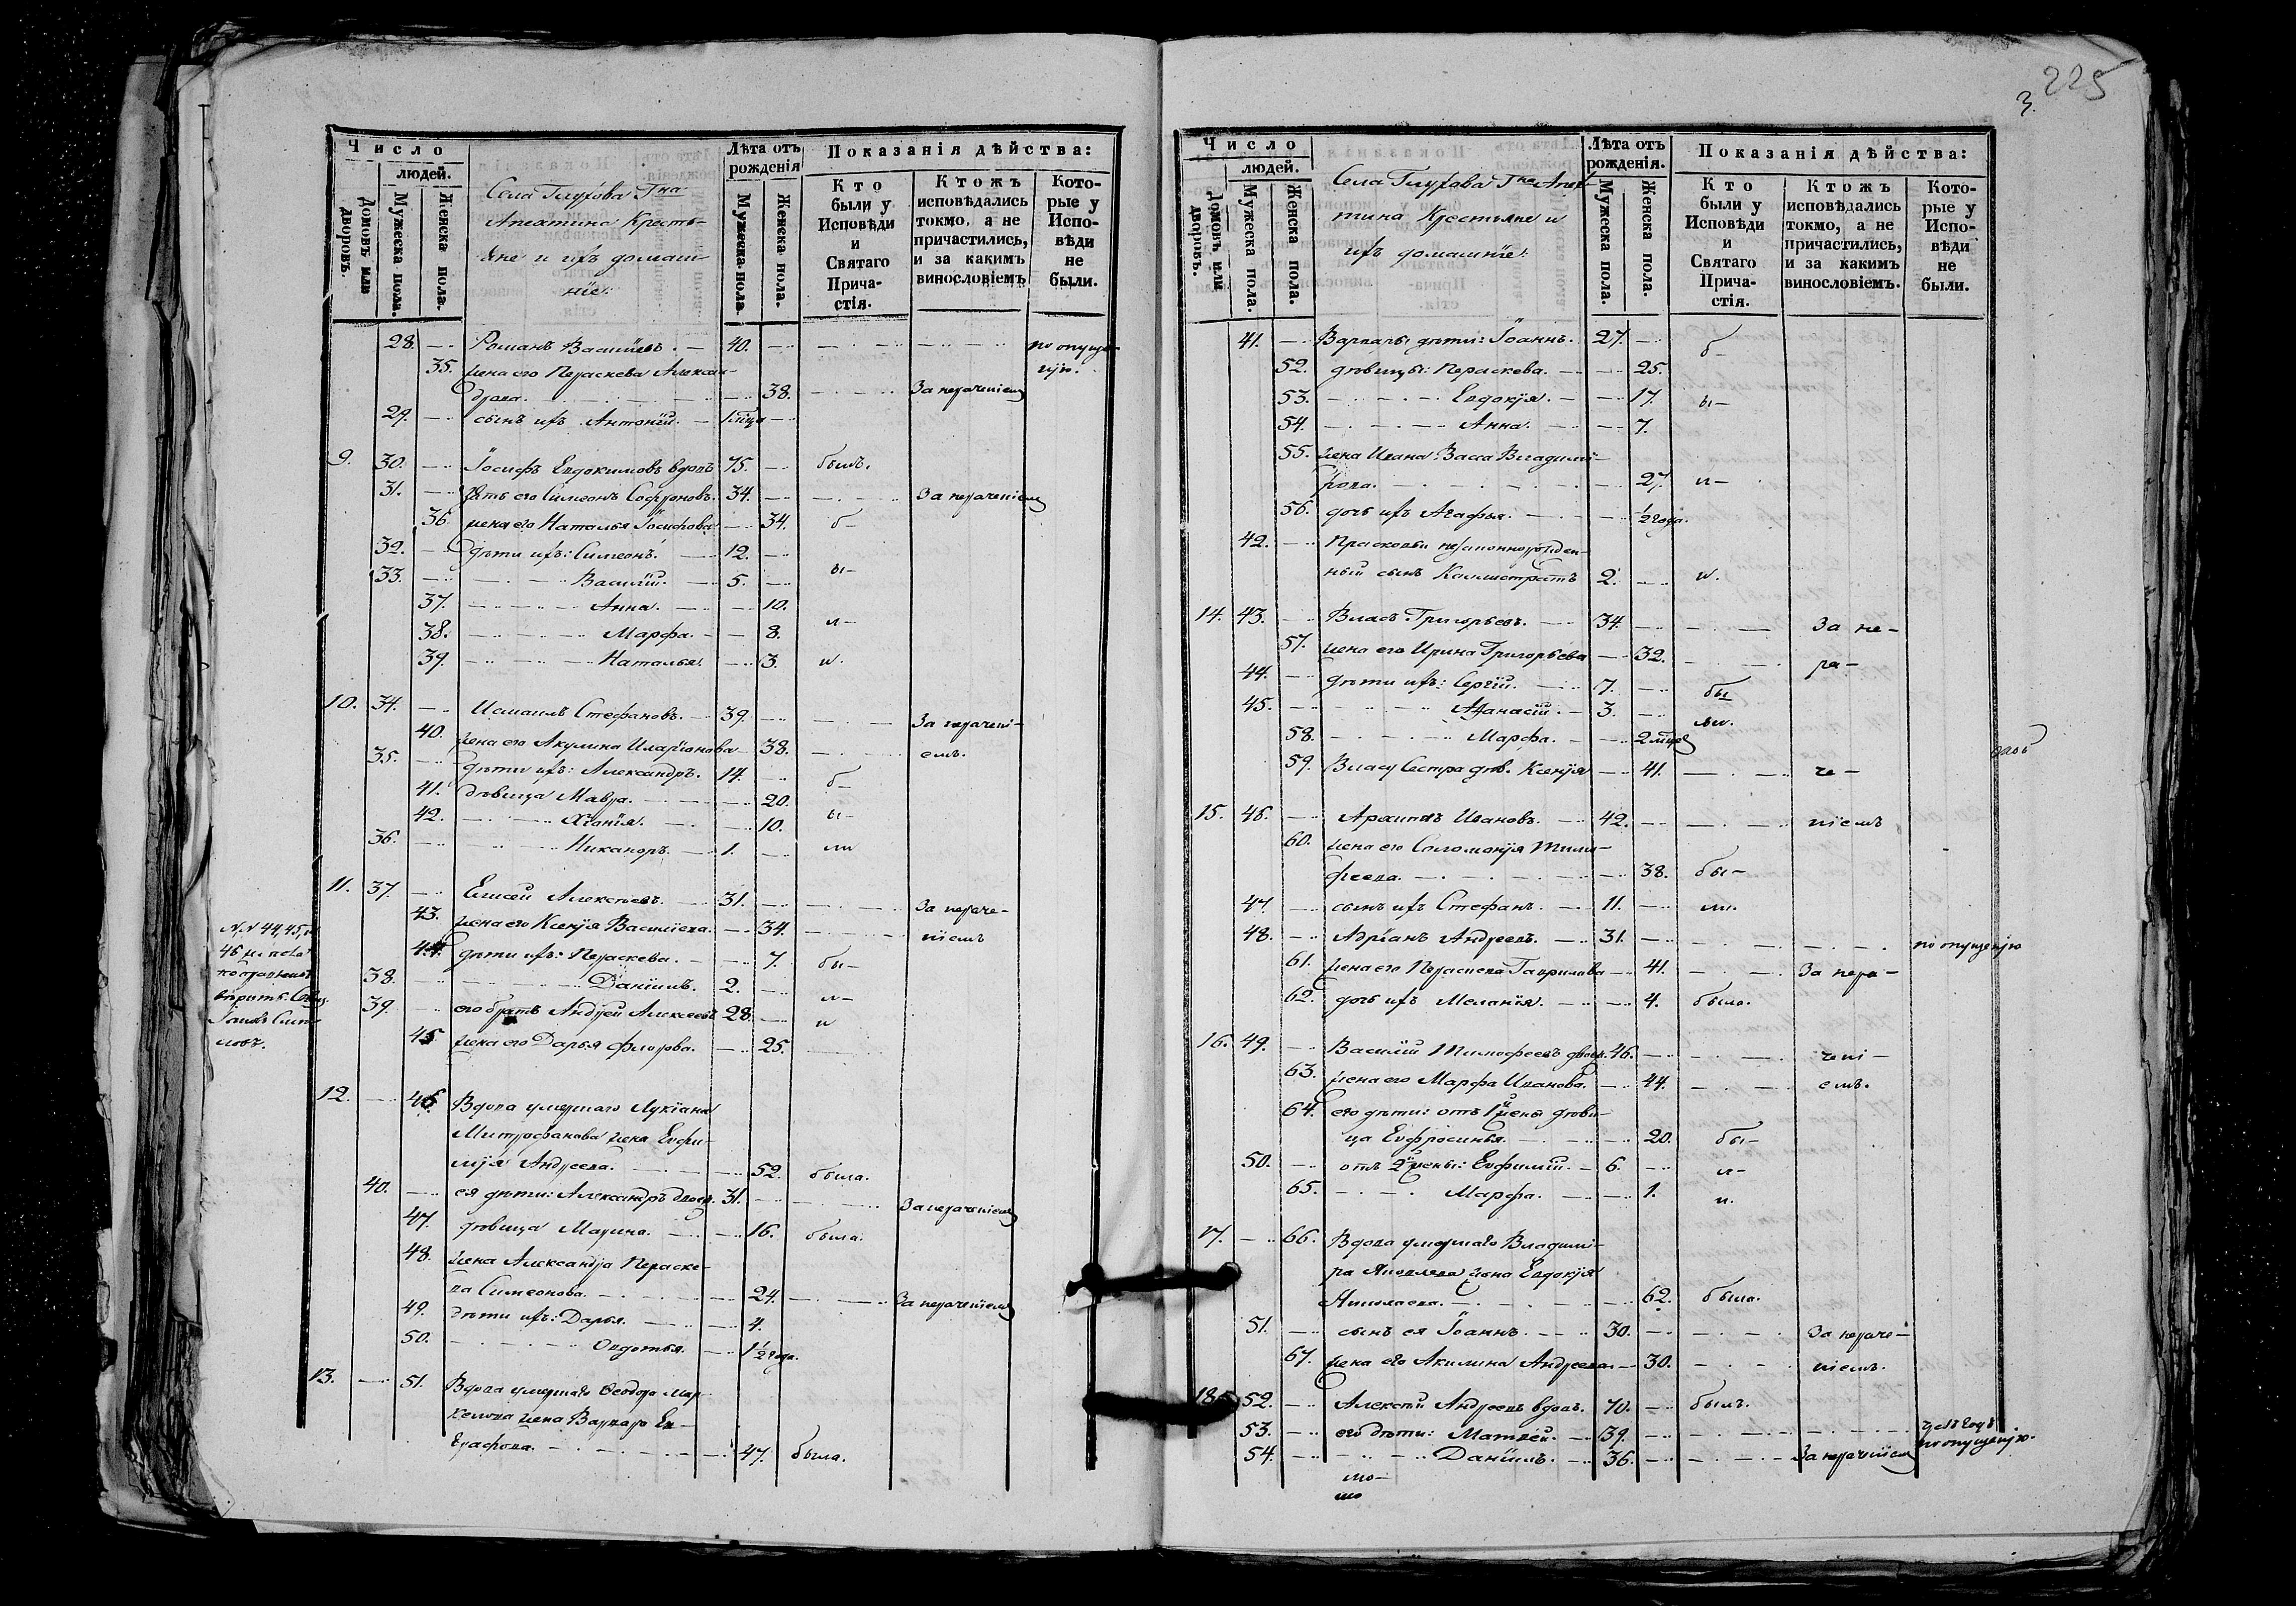 225
3.
Число
людей.
Домовъ или дворовъ.
Мужеска пола.
Женска пола.
Села Глухова Гна
Апехтина Кресть-
яне и ихъ домаш-
нiе:
Лѣта отъ рожденія
Мужеска пола.
Женска пола.
Показанія дѣйства:
Кто были у Исповѣди и Святаго Прича-стія.
Ктожъ исповѣдались токмо, а не причастились, и за какимъ винословіемъ
Кото-рые у Испо-вѣди не были.
28. Романъ Васильевъ. 40. по опуще-
35. жена его Пераскева Алексан- нiю.
дрова. 38. За нераченiемъ
29. сынъ ихъ Антонiй. 1 мца
9. 30. Iосифъ Евдокимовъ вдовъ 75. былъ.
31. зять его Симеонъ Софроновъ. 34. За нераченiемъ
36. жена его Наталья Iосифова 34. б-
32. дѣти ихъ: Симеонъ. 12.
33. Василiй. 5. ы-
37. Анна. 10.
38. Марфа. 8. л-
39. Наталья. 3. и.
10. 34. Исмаилъ Стефановъ. 39. За нерачені-
40. жена его Акулина Иларiонова 38. емъ.
35. дѣти ихъ: Александръ. 14. б-
41. дѣвица Мавра. 20.
42. Хiонiя. 10. ы-
36. Никаноръ. 1. ли
11. 37. Елисей Алексѣевъ. 31. За нераче-
43. жена его Ксенiя Васильева. 34. нiемъ
44. дѣти ихъ: Пераскева. 7. бы-
38. Данiилъ. 2. л-
39. его братъ Андрей Алексѣевъ 28. и
45 жена его Дарья Флорова. 25.
N.N 44, 45, и
46 по
вѣрить.
12. 46 Вдова умершаго Лукiана
Митрофанова жена Евфи-
мiя Андреева. 52. была.
40. ея дѣти: Александръ двоеж. 31. За нераченiемъ
47. дѣвица Марина. 16. была.
48. жена Александра Пераске-
ва Симеонова. 24. За нераченiемъ
49. дѣти ихъ: Дарья. 4.
50. Овдотья. 1½ года.
13. 51. Вдова умершаго Ѳеодора Мар-
келова жена Варвара Ев-
графова. 47. была.
Число
людей.
Домовъ или дворовъ.
Мужеска пола.
Женска пола.
Села Глухова Гна Апех-
тина Крестьяне и
ихъ домашнiе:
Лѣта отъ рожденія.
Мужеска пола.
Женска пола.
Показанія дѣйства:
Кто были у Исповѣди и Святаго Прича-стія.
Ктожъ исповѣдались токмо, а не причастились, и за какимъ винословіемъ.
Кото-рые у Испо-вѣди не были.
41. Варвары дѣти: Iоаннъ. 27. б-
52. дѣвицы: Пераскева. 25.
53. Евдокiя. 17. ы-
54. Анна. 7.
55. жена Ивана Васса Владимi-
рова. 27. л-
56. дочь ихъ Агафья. ½ года.
42. Прасковьи незаконнорожден-
ный сынъ Каллистратъ 2. и.
14. 43. Власъ Григорьевъ. 34. За не-
57. жена его Ирина Григорьева 32. ра-
44. дѣти ихъ: Сергiй. 7. бы
45. Аѳанасiй. 3. ли.
58. Марфа. 2 мцев
59. Власу Сестра дѣв. Ксенiя 41. че-
15. 46. Архипъ Ивановъ. 42. нiемъ
60. жена его Соломонiя Тимо-
феева. 38. бы-
47. сынъ ихъ Стефанъ. 11. ли.
48. Адрiанъ Андреевъ. 31. по опущенiю
61. жена его Пераскева Гаврилова 41. За нера-
62. дочь ихъ Меланiя. 4. была.
16. 49. Василiй Тимофеевъ двоеж. 46. чені-
63. жена его Марфа Иванова. 44. емъ.
64. его дѣти: отъ 1й жены дѣви-
ца Евфросинья. 20. бы-
50. отъ 2й жены: Евфимiй. 6. л-
65. Марфа. 1. и.
17. 66. Вдова умершаго Владими-
ра Яковлева жена Евдокiя
Николаева. 62. была.
51. сынъ ея Iоаннъ. 30. За нераче-
67. жена его Акилина Андреева 30. нiемъ.
18. 52. Алексѣй Андреевъ вдовъ. 70. былъ.
53. его дѣти: Матвей. 39. по опущенiю.
54. Данiилъ. 36. За нераченiемъ